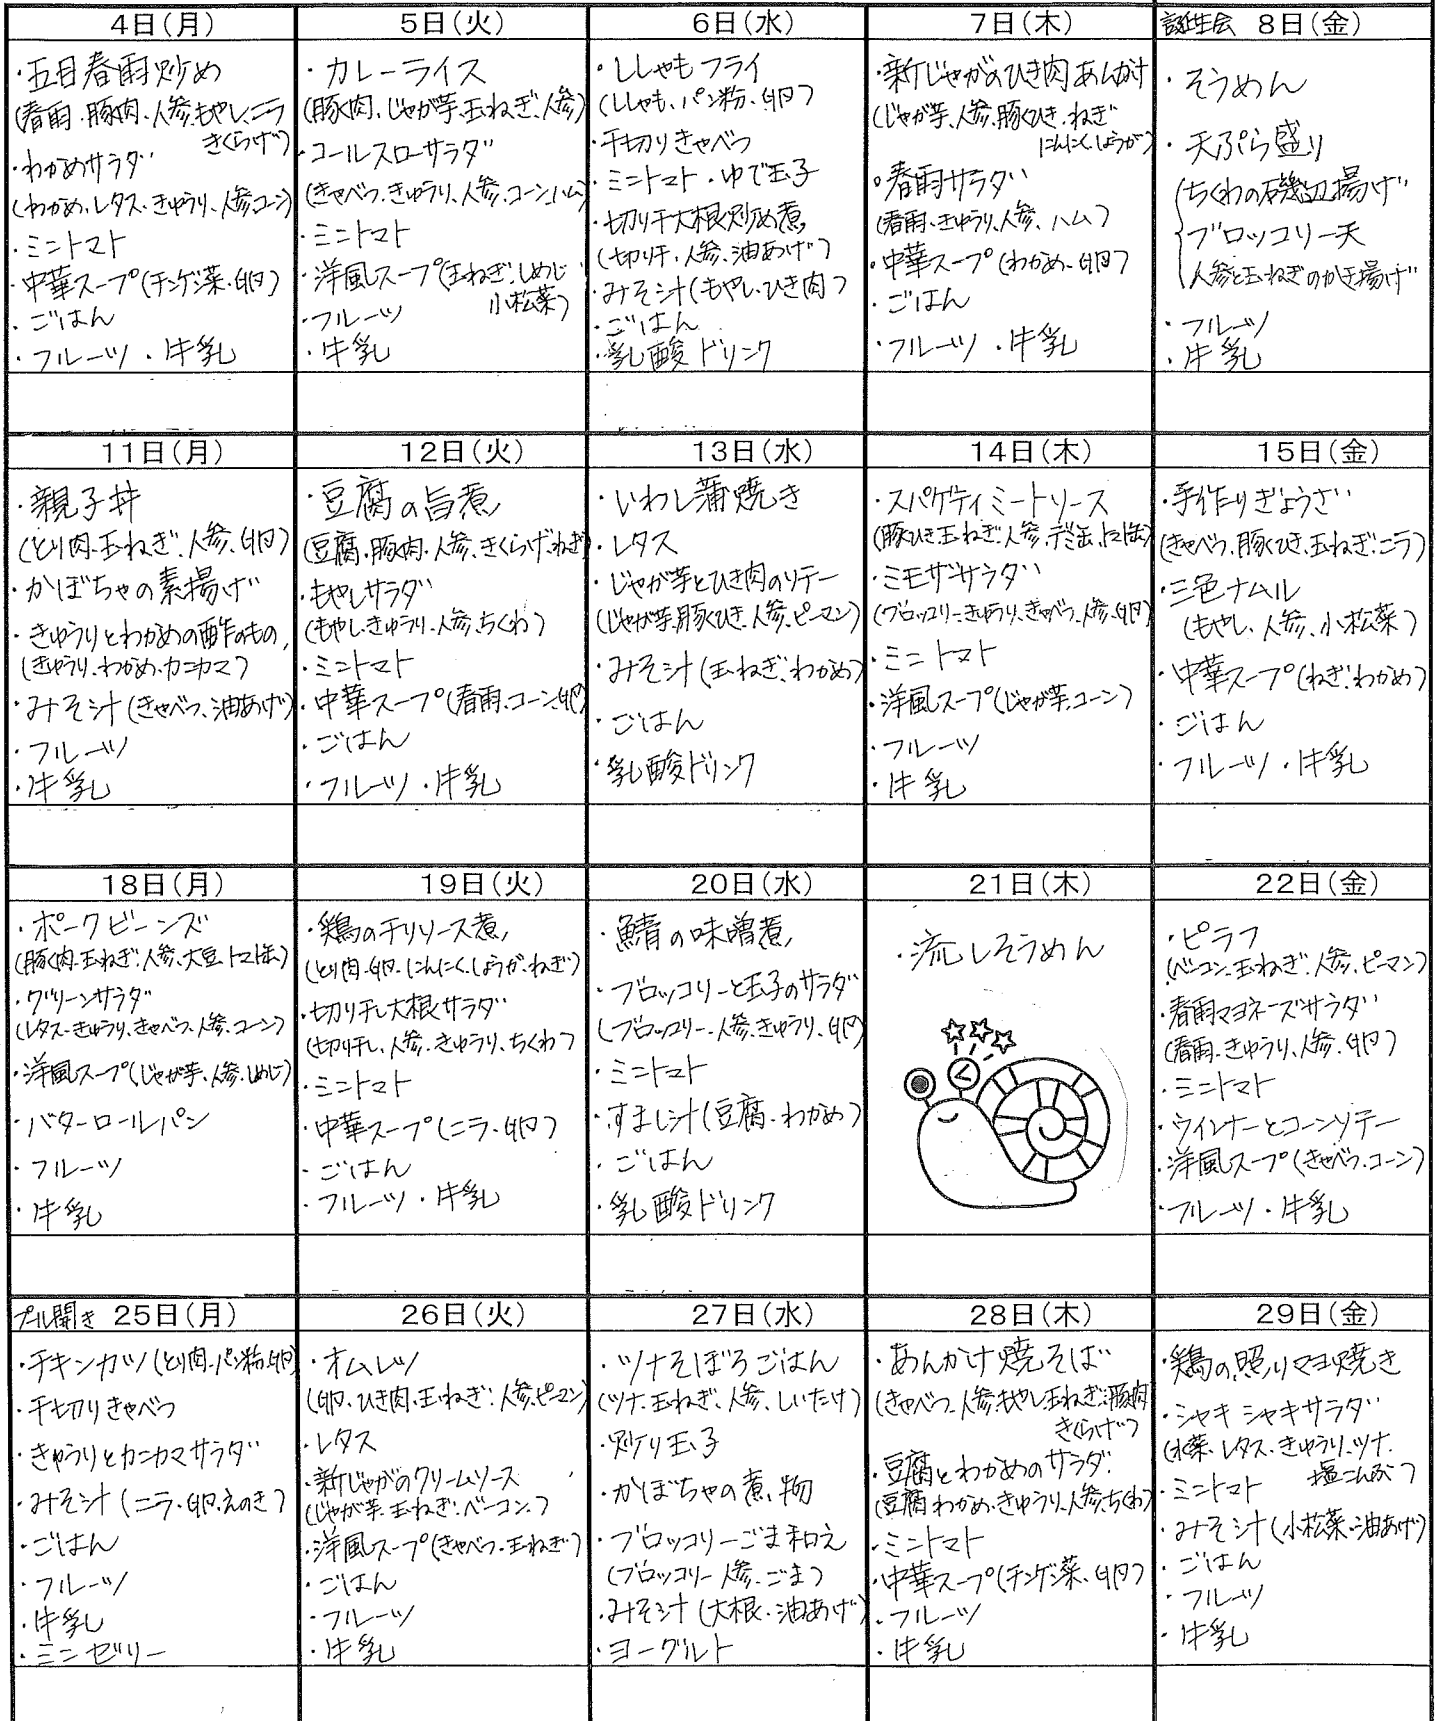 4日(月)
・五目春雨炒め
(春雨・豚肉・人参・もやし・ニラ
きくらげ)
・わかめサラダ
(わかめ、レタス・きゅうり、人参、コーン)
・ミニトマト
・中華スープ(チンゲン菜・卵)
・ごはん
・フルーツ ・牛乳
5日(火)
・カレーライス
(豚肉、じゃが芋、玉ねぎ、人参)
・コールスローサラダ
(きゃべつ、きゅうり、人参、コーン、ハム)
・ミニトマト
・洋風スープ(玉ねぎ、しめじ
小松菜)
・フルーツ
・牛乳
6日(水)
・ししゃもフライ
(ししゃも、パン粉、卵)
・千切りきゃべつ
・ミニトマト・ゆで玉子
・切り干大根炒め煮
(切り干、人参、油あげ)
・みそ汁(もやし、ひき肉)
・ごはん
・乳酸ドリンク
7日(木)
・新じゃがのひき肉あんかけ
(じゃが芋、人参、豚ひき、ねぎ
にんにく、しょうが)
・春雨サラダ
(春雨、きゅうり、人参、ハム)
・中華スープ(わかめ、卵)
・ごはん
・フルーツ ・牛乳
誕生会 8日(金)
・そうめん
・天ぷら盛り
ちくわの磯辺揚げ
ブロッコリー天
人参と玉ねぎのかき揚げ
・フルーツ
・牛乳
11日(月)
・親子丼
(とり肉、玉ねぎ、人参、卵)
・かぼちゃの素揚げ
・きゅうりとわかめの酢のもの
(きゅうり、わかめ、カニカマ)
・みそ汁(きゃべつ、油あげ)
・フルーツ
・牛乳
12日(火)
・豆腐の旨煮
(豆腐、豚肉、人参、きくらげ、ねぎ)
・もやしサラダ
(もやし、きゅうり、人参、ちくわ)
・ミニトマト
・中華スープ(春雨、コーン、卵)
・ごはん
・フルーツ ・牛乳
13日(水)
・いわし蒲焼き
・レタス
・じゃが芋とひき肉のソテー
(じゃが芋、豚ひき、人参、ピーマン)
・みそ汁(玉ねぎ、わかめ)
・ごはん
・乳酸ドリンク
14日(木)
・スパゲティミートソース
(豚ひき、玉ねぎ、人参、デミ缶、トマト缶)
・ミモザサラダ
(ブロッコリー、きゅうり、きゃべつ、人参、卵)
・ミニトマト
・洋風スープ(じゃが芋、コーン)
・フルーツ
・牛乳
15日(金)
・手作りぎょうざ
(きゃべつ、豚ひき、玉ねぎ、ニラ)
・三色ナムル
(もやし、人参、小松菜)
・中華スープ(ねぎ、わかめ)
・ごはん
・フルーツ ・牛乳
18日(月)
・ポークビーンズ
(豚肉、玉ねぎ、人参、大豆、トマト缶)
・グリーンサラダ
(レタス、きゅうり、きゃべつ、人参、コーン)
・洋風スープ(じゃが芋、人参、しめじ)
・バターロールパン
・フルーツ
・牛乳
19日(火)
・鶏のチリソース煮
(とり肉、卵、にんにく、しょうが、ねぎ)
・切り干し大根サラダ
(切り干し、人参、きゅうり、ちくわ)
・ミニトマト
・中華スープ(ニラ・卵)
・ごはん
・フルーツ ・牛乳
20日(水)
・鯖の味噌煮
・ブロッコリーと玉子のサラダ
(ブロッコリー、人参、きゅうり、卵)
・ミニトマト
・すまし汁(豆腐、わかめ)
・ごはん
・乳酸ドリンク
21日(木)
・流しそうめん
22日(金)
・ピラフ
(ベーコン、玉ねぎ、人参、ピーマン)
・春雨マヨネーズサラダ
(春雨、きゅうり、人参、卵)
・ミニトマト
・ウインナーとコーンソテー
・洋風スープ(きゃべつ、コーン)
・フルーツ ・牛乳
プール開き 25日(月)
・チキンカツ(とり肉、パン粉、卵)
・千切りきゃべつ
・きゅうりとカニカマサラダ
・みそ汁(ニラ・卵、えのき)
・ごはん
・フルーツ
・牛乳
・ミニゼリー
26日(火)
・オムレツ
(卵、ひき肉、玉ねぎ、人参、ピーマン)
・レタス
・新じゃがのクリームソース
(じゃが芋、玉ねぎ、ベーコン)
・洋風スープ(きゃべつ、玉ねぎ)
・ごはん
・フルーツ
・牛乳
27日(水)
・ツナそぼろごはん
(ツナ、玉ねぎ、人参、しいたけ)
・炒り玉子
・かぼちゃの煮物
・ブロッコリーごま和え
(ブロッコリー、人参、ごま)
・みそ汁(大根・油あげ)
・ヨーグルト
28日(木)
・あんかけ焼そば
(きゃべつ、人参、もやし、玉ねぎ、豚肉
きくらげ)
・豆腐とわかめのサラダ
(豆腐、わかめ、きゅうり、人参、ちくわ)
・ミニトマト
・中華スープ(チンゲン菜、卵)
・フルーツ
・牛乳
29日(金)
・鶏の照りマヨ焼き
・シャキシャキサラダ
(水菜、レタス、きゅうり、ツナ、
塩こんぶ)
・ミニトマト
・みそ汁(小松菜・油あげ)
・ごはん
・フルーツ
・牛乳